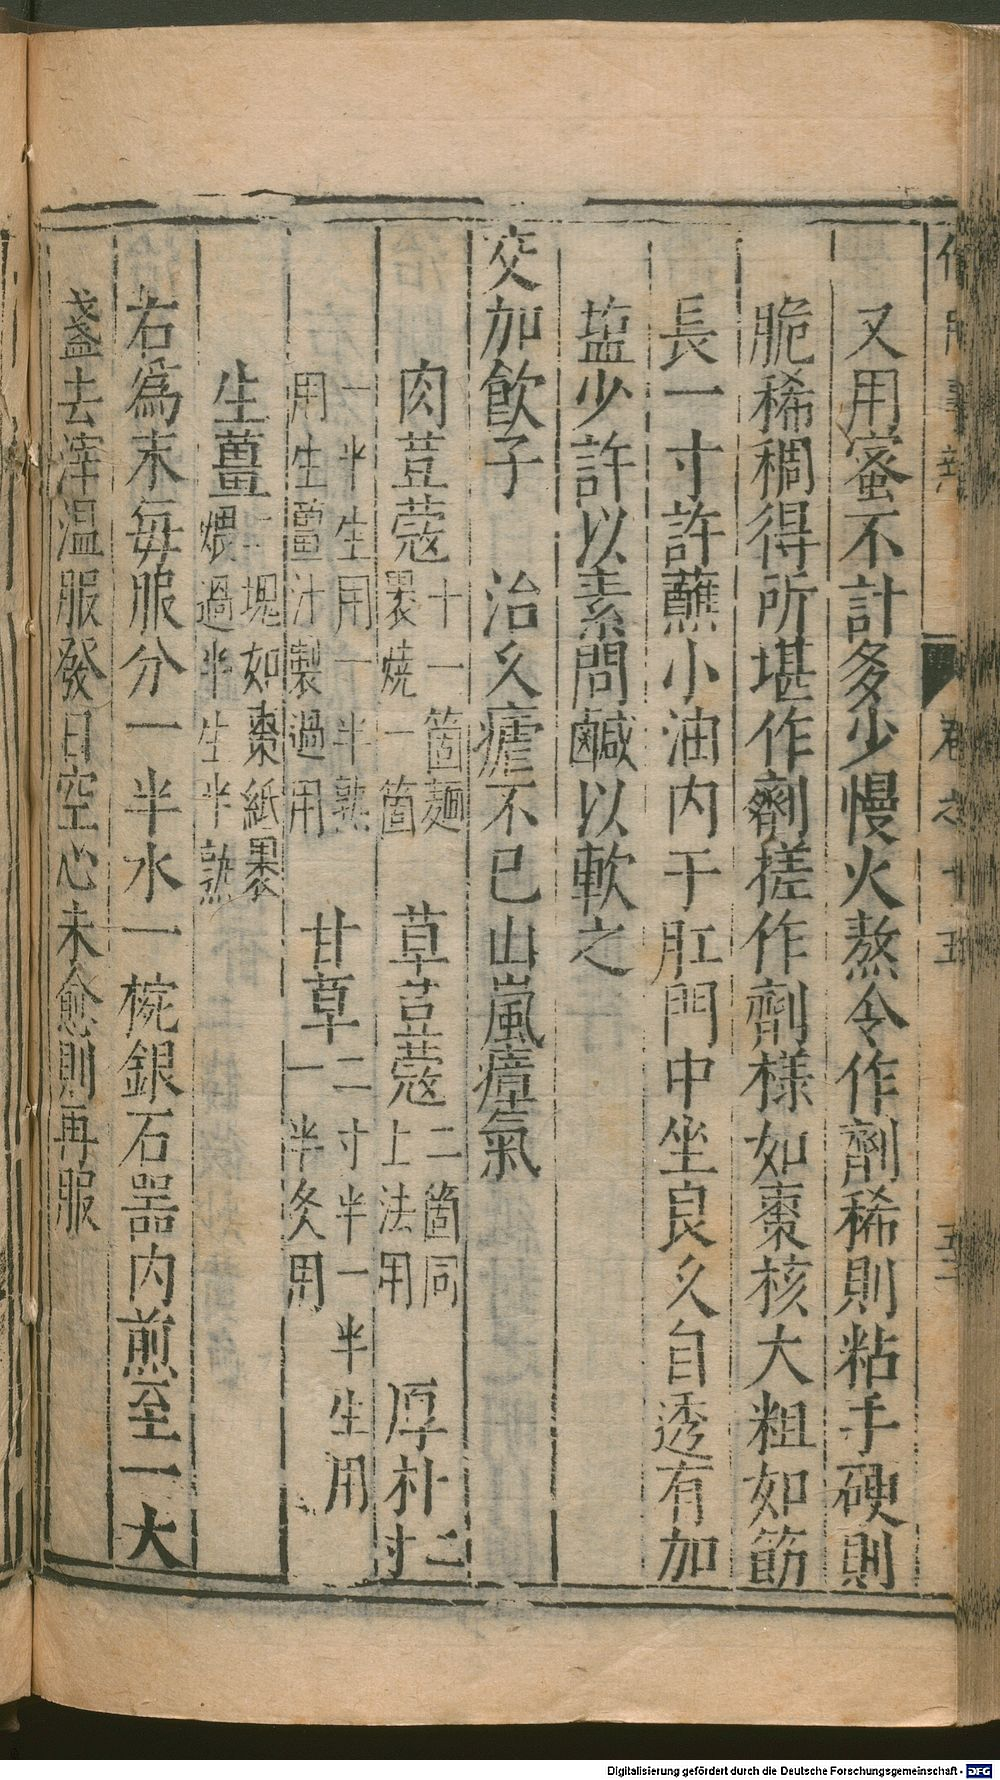 又用蜜不計多少慢火熬令作劑稀則粘手硬則
脆稀稠得所堪作劑搓作劑樣如棗核大粗如筯
長一寸許蘸小油内于肛門中坐良久自透有加
塩少許以素問鹹以軟之
交加飲子　治久瘧不已山嵐瘴氣
肉荳蔻十一箇麵裹燒一箇　草荳蔻二箇同上法用　厚朴二寸
一半生用一半熟用生薑汁製過用　甘草二寸半一半生用一半炙用
生薑二塊如棗紙裹煨過半生半熟
右爲末每服分一半水一椀銀石器内煎至一大
盞去滓温服發日空心未愈則再服
卷之十五
Digitalisierung gefördert durch die Deutsche Forschungsgemeinschaft - DFG